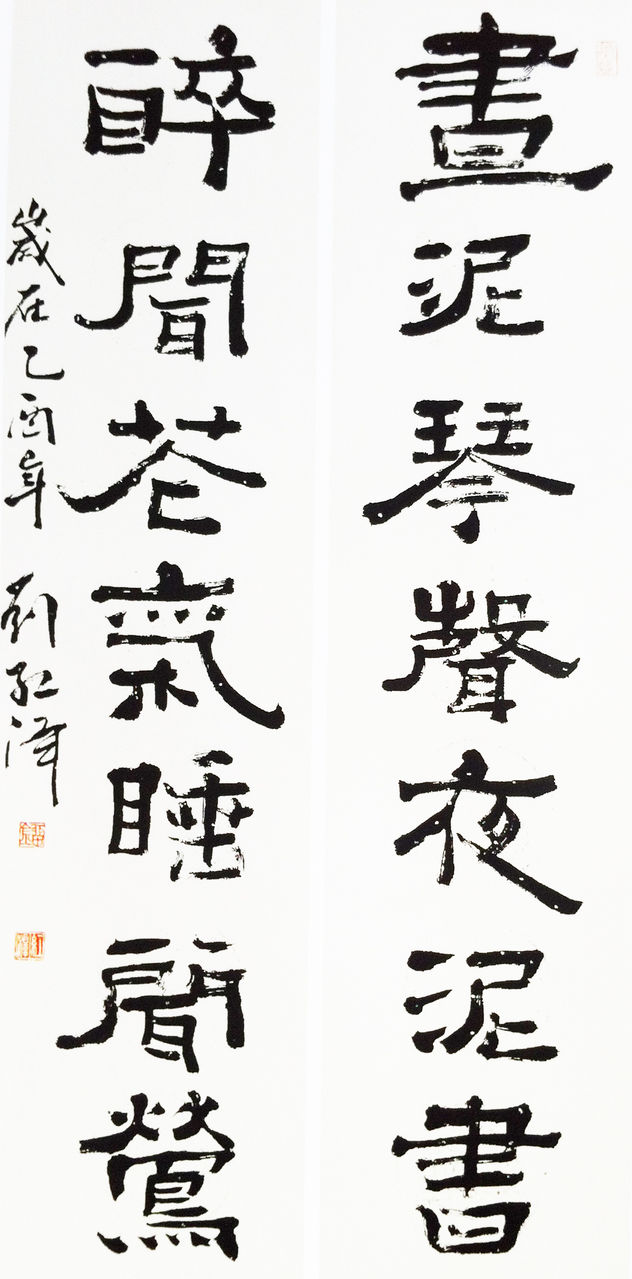 晝泥琴聲夜泥書
醉聞花氣睡聞鶯
歲在乙酉年 刘红泽